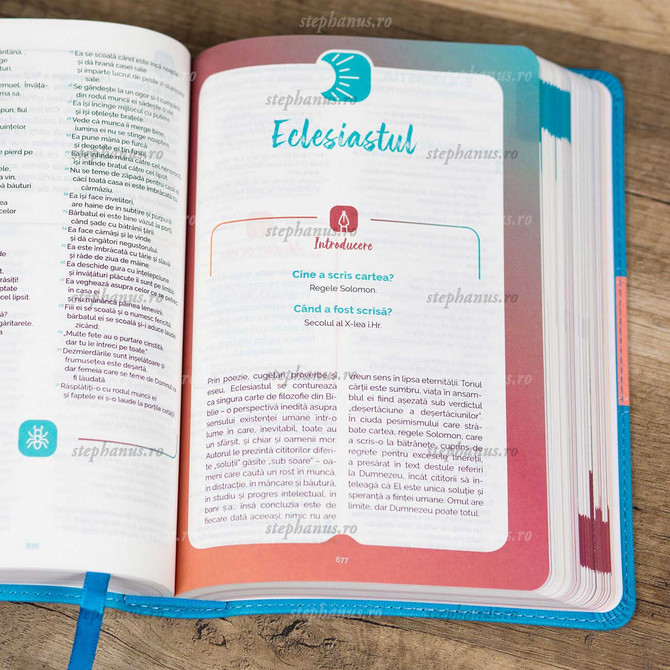 antână,
turi.
emuel. Învăță-
ma sa.
puri, fiul
uințelor
e pierd pe
a vin,
băuturi
celor
răsiți!
el lipsit.
ă?
găritarele.
Ea se scoală când este încă noapte
și dă hrană casei sale
și împarte lucrul de peste zi
Se gândește la un ogor și-l cumpără;
din rodul muncii ei sădește o vie.
Ea își încinge mijlocul cu putere
și își oțelește brațele.
Vede că munca îi merge bine,
lumina ei nu se stinge noaptea.
Ea pune mâna pe furcă
și degetele ei țin fusul.
Ea își întinde mâna către cel nenorocit,
își întinde brațul către cel lipsit.
Nu se teme de zăpadă pentru casa ei,
căci toată casa ei este îmbrăcată cu
cârmâziu.
Ea își face învelitori,
are haine de in subțire și purpură.
Bărbatul ei este bine văzut la porți
când șade cu bătrânii țării.
Ea face cămăși și le vinde
și dă cingători negustorului.
Ea este îmbrăcată cu tărie și slavă
și râde de ziua de mâine.
Ea deschide gura cu înțelepciune
și învățături plăcute îi sunt pe limbă.
Ea veghează asupra celor ce se petrec
în casa ei
și nu mănâncă pâinea lenevirii.
Fiii ei se scoală și o numesc fericită;
bărbatul ei se scoală și-i aduce laude
zicând:
„Multe fete au o purtare cinstită,
dar tu le întreci pe toate.”
Dezmierdările sunt înșelătoare și
frumusețea este deșartă,
dar femeia care se teme de Domnul va
fi lăudată.
Răsplătiți-o cu rodul muncii ei
și faptele ei s-o laude la porțile cetății
Eclesiastul
Introducere
Cine a scris cartea?
Regele Solomon.
Când a fost scrisă?
Secolul al X-lea î.Hr.
Prin poezie, cugetări, proverbe și
eseu, Eclesiastul se conturează
ca singura carte de filozofie din Bi-
blie – o perspectivă inedită asupra
sensului existenței umane într-o
lume în care, inevitabil, toate au
un sfârșit, și chiar și oamenii mor.
Autorul le prezintă cititorilor diferi-
te „soluții” găsite „sub soare” – oa-
meni care caută un rost în muncă,
în distracție, în mâncare și băutură,
în studiu și progres intelectual, în
bani ș.a., însă concluzia este de
fiecare dată aceeași: nimic nu are
vreun sens în lipsa eternității. Tonul
cărții este sumbru, viața în ansam-
blul ei fiind așezată sub verdictul
„deșertăciune a deșertăciunilor”.
În ciuda pesimismului care stră-
bate cartea, regele Solomon, care
a scris-o la bătrânețe, cuprins de
regrete pentru excesele tinereții,
a presărat în text destule referiri
la Dumnezeu, încât cititorii să în-
țeleagă că El este unica soluție și
speranță a ființei umane. Omul are
limite, dar Dumnezeu poate totul.
677
stephanus.ro
stephanus.ro
stephanus.ro
stephanus.ro
stephanus.ro
stephanus.ro
stephanus.ro
stephanus.ro
stephanus.ro
stephanus.ro
stephanus.ro
stephanus.ro
stephanus.ro
stephanus.ro
stephanus.ro
stephanus.ro
stephanus.ro
stephanus.ro